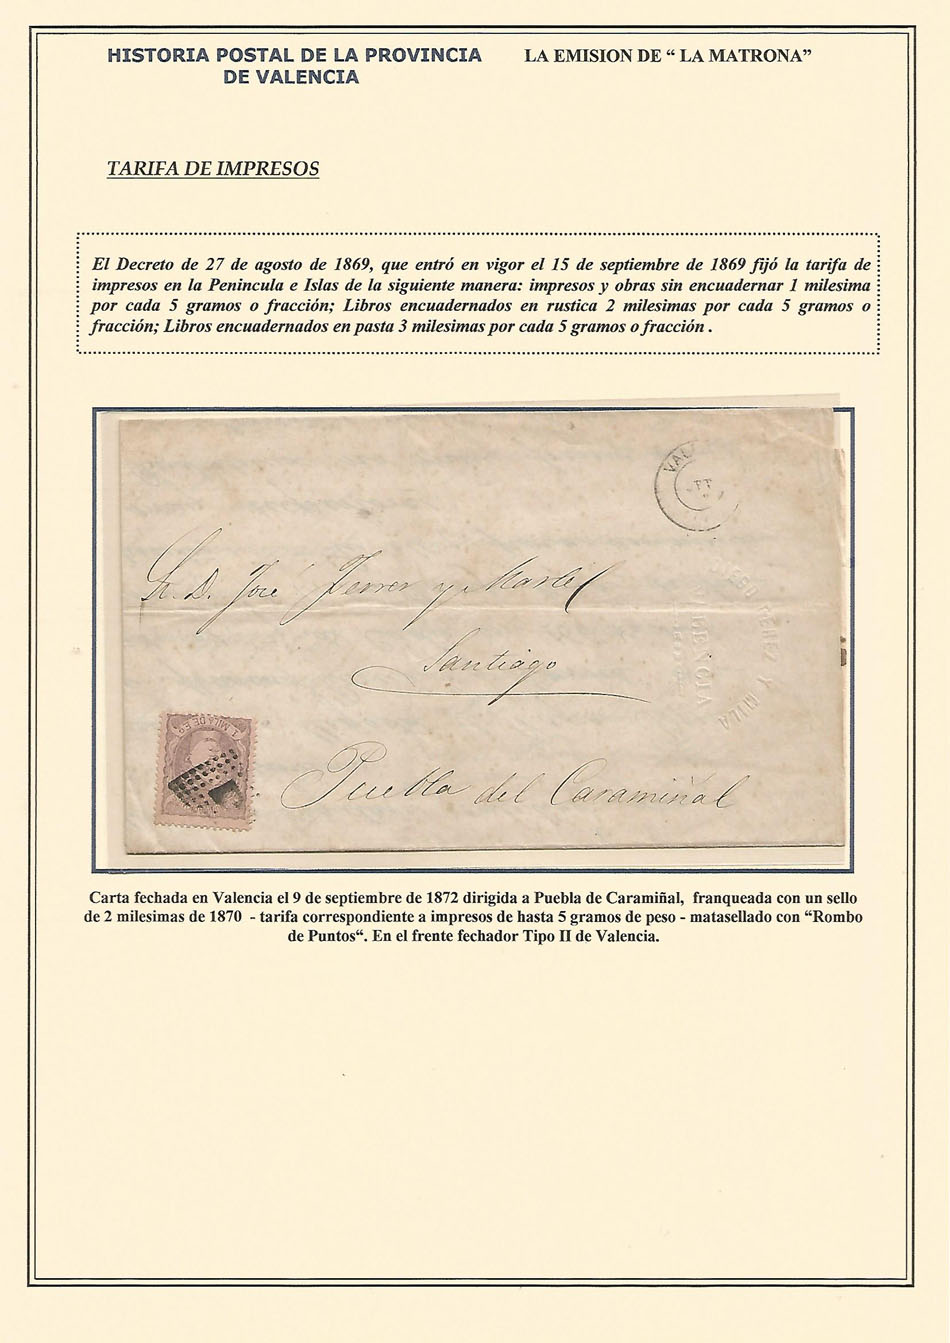 HISTORIA POSTAL DE LA PROVINCIA DE VALENCIA
LA EMISION DE “ LA MATRONA”
TARIFA DE IMPRESOS
El Decreto de 27 de agosto de 1869, que entró en vigor el 15 de septiembre de 1869 fijó la tarifa de
impresos en la Penincula e Islas de la siguiente manera: impresos y obras sin encuadernar 1 milesima
por cada 5 gramos o fracción; Libros encuadernados en rustica 2 milesimas por cada 5 gramos o
fracción; Libros encuadernados en pasta 3 milesimas por cada 5 gramos o fracción .
VAL
Sr. D. José Ferrer y Martí
Santiago
Y MILA
Puebla del Caramiñal
Carta fechada en Valencia el 9 de septiembre de 1872 dirigida a Puebla de Caramiñal, franqueada con un sello
de 2 milesimas de 1870 - tarifa correspondiente a impresos de hasta 5 gramos de peso - matasellado con “Rombo
de Puntos“. En el frente fechador Tipo II de Valencia.